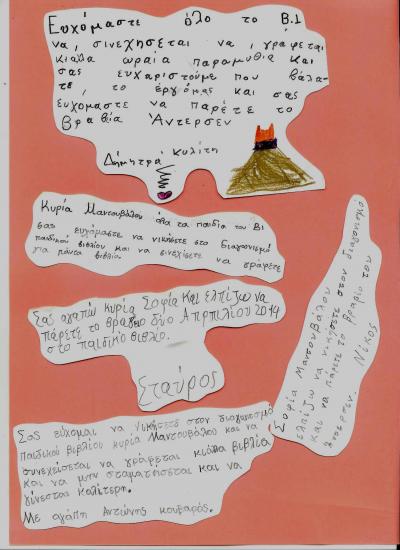 Ευχόμαστε όλο το Β.1
να, σινεχήσεται να, γράφεται
κιαλα ωραία παραμυθια και
σας ευχαριστούμε που βάλα-
τε, το έργο μας και σας
ευχομαστε να παρέτε το
βραβία Άντερσεν
Δήμητρα Κυλίτη
Κυρία Μαντουβάλου όλα τα παιδια του Β1
σας ευχόμαστε να νικήσετε στο διαγονισμό
παιδικού βιβλίου και να συνεχίσετε να γράφετε
για πάντα βιβλία
Σας αγαπώ κυρία Σοφία και ελπίζω να
πάρετε το βραβίο δύο Απρπιλίου 2014
στο παιδικό βιβλίο.
Σταύρος
Σοφία Μαντουβάλου
ελπίζω να νικήσετε στον διαγονισμό
και να πάρετε το βραβίο του
Άντερσεν. Νίκος
Σας εύχομαι να νικήσετε στον διαγωνισμό
παιδικού βιβλίου κυρία Μαντουβάλου και να
συνεχείσεται να γράφεται κιάλα βιβλία
και να μην σταματείσεται και να
γίνεσται καλίτερη.
Με αγάπη Αντώνης κουβαρός.